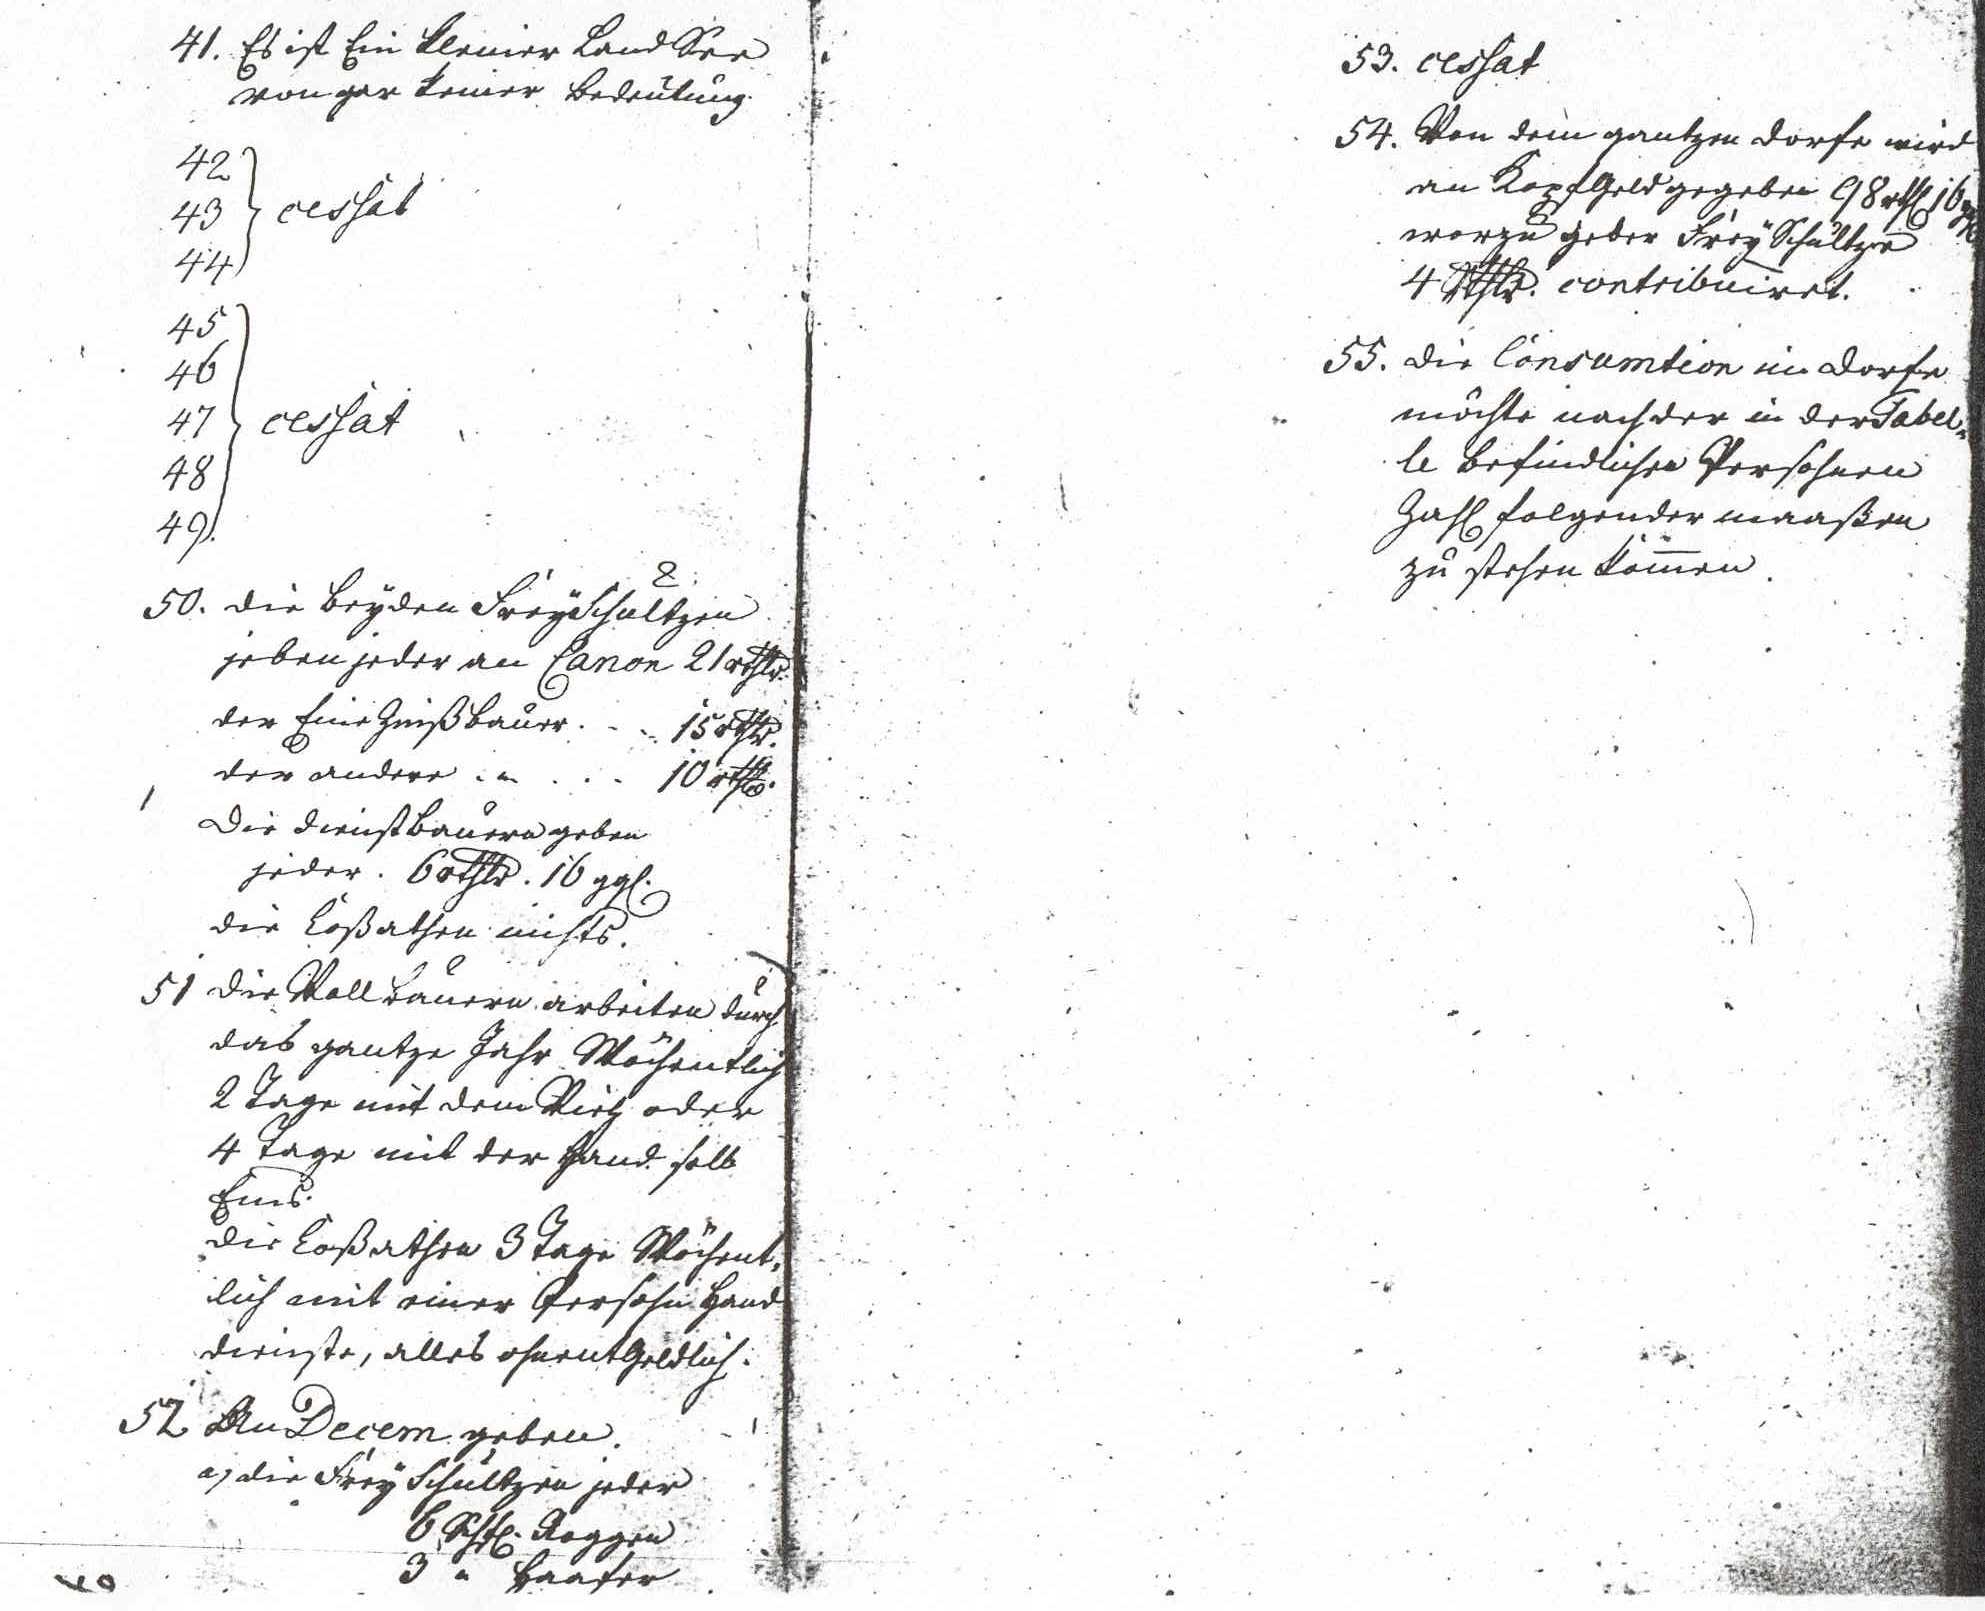 41. Es ist Ein kleiner Land See
von gar keiner Bedeutung.
42
43 cessat
44
45
46
47 cessat
48
49.
50. die beyden FreySchultzen
geben jeder an Canon 21 rthlr.
der Eine Zinßbauer . . . 15 rthlr.
der andere . . . . 10 rthlr.
Die dienstbauern geben
jeder . 6 rthlr. 16 ggl.
die Coßathen nichts.
51 die Vollbauern arbeiten durch
das gantze Jahr Wöchentlich
2 Tage mit dem Vieh oder
4 Tage mit der Hand selb
Eins.
die Coßathen 3 Tage Wöchent-
lich mit einer Persohn Hand
dienste, alles ohnentgeldlich.
52 An Decem geben.
a, die FreySchultzen jeder
6 Schfl. Roggen
3 " Haafer
53. cessat
54. Von dem gantzen dorfe wird
an KopfGeld gegeben 98 rthl 16
worzu jeder FreySchultze
4 Rthlr. contribuiret.
55. die Consumtion im dorfe
möchte nach der in der Tabel-
le befindlichen Persohnen
Zahl folgender maaßen
zu stehen kom̅en.